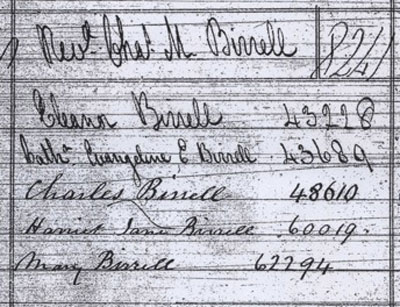 Revd. Chas. M. Birrell 8241
Eleanor Birrell 43228
Cathn. Evangeline E Birrell 43689
Charles Birrell 48610
Harriet Jane Birrell 60019.
Mary Birrell 62294